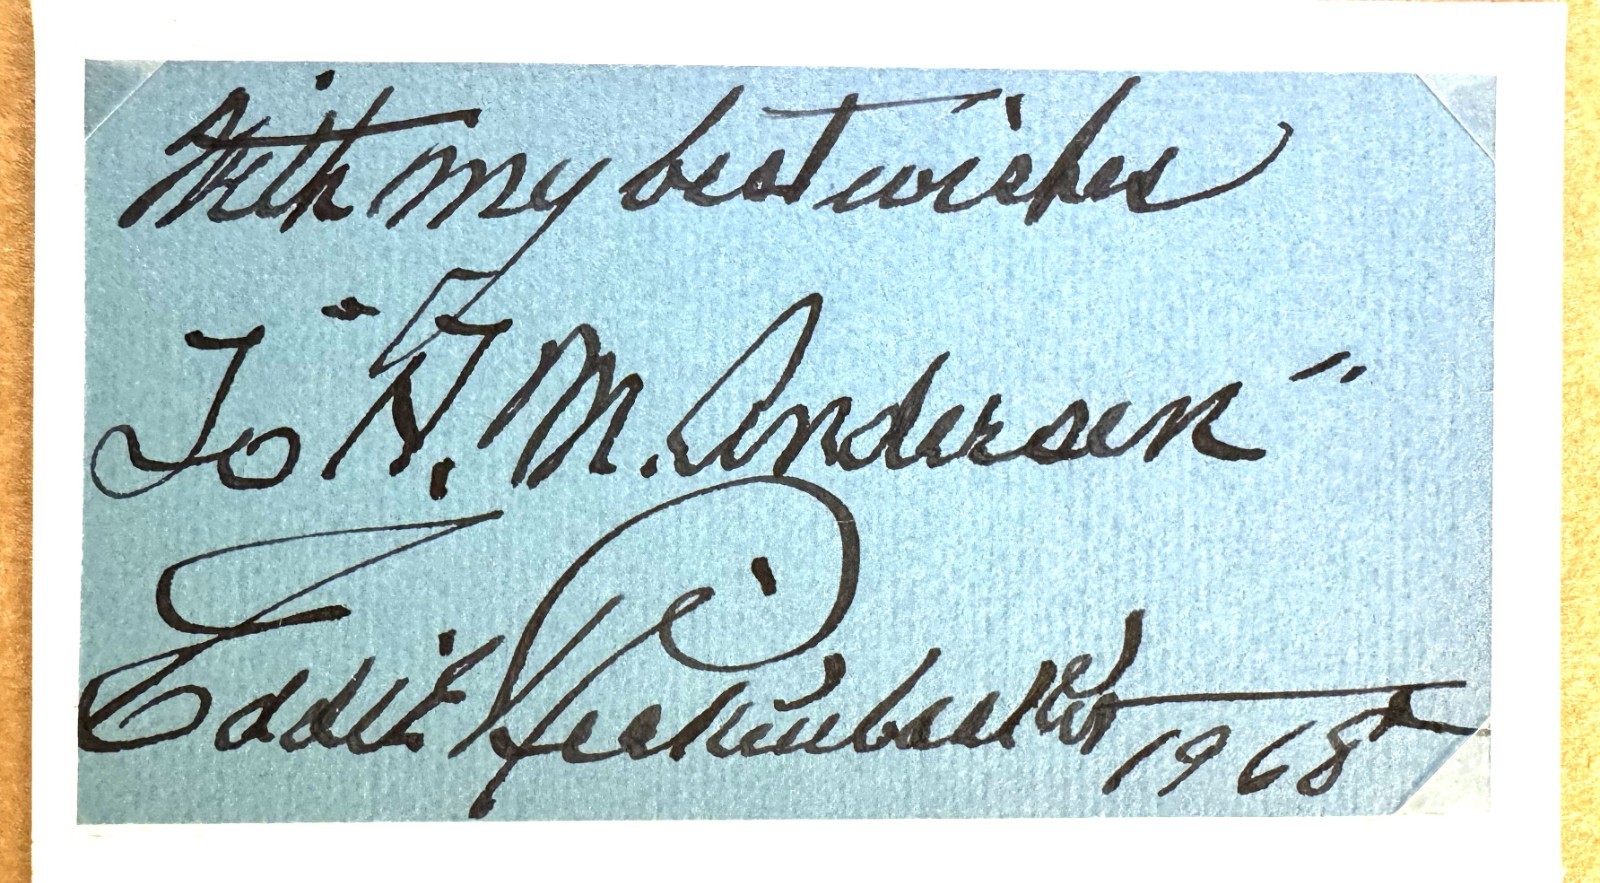 With my best wishes
To "H. M. Andersen"
Eddie Rickenbacker
1968